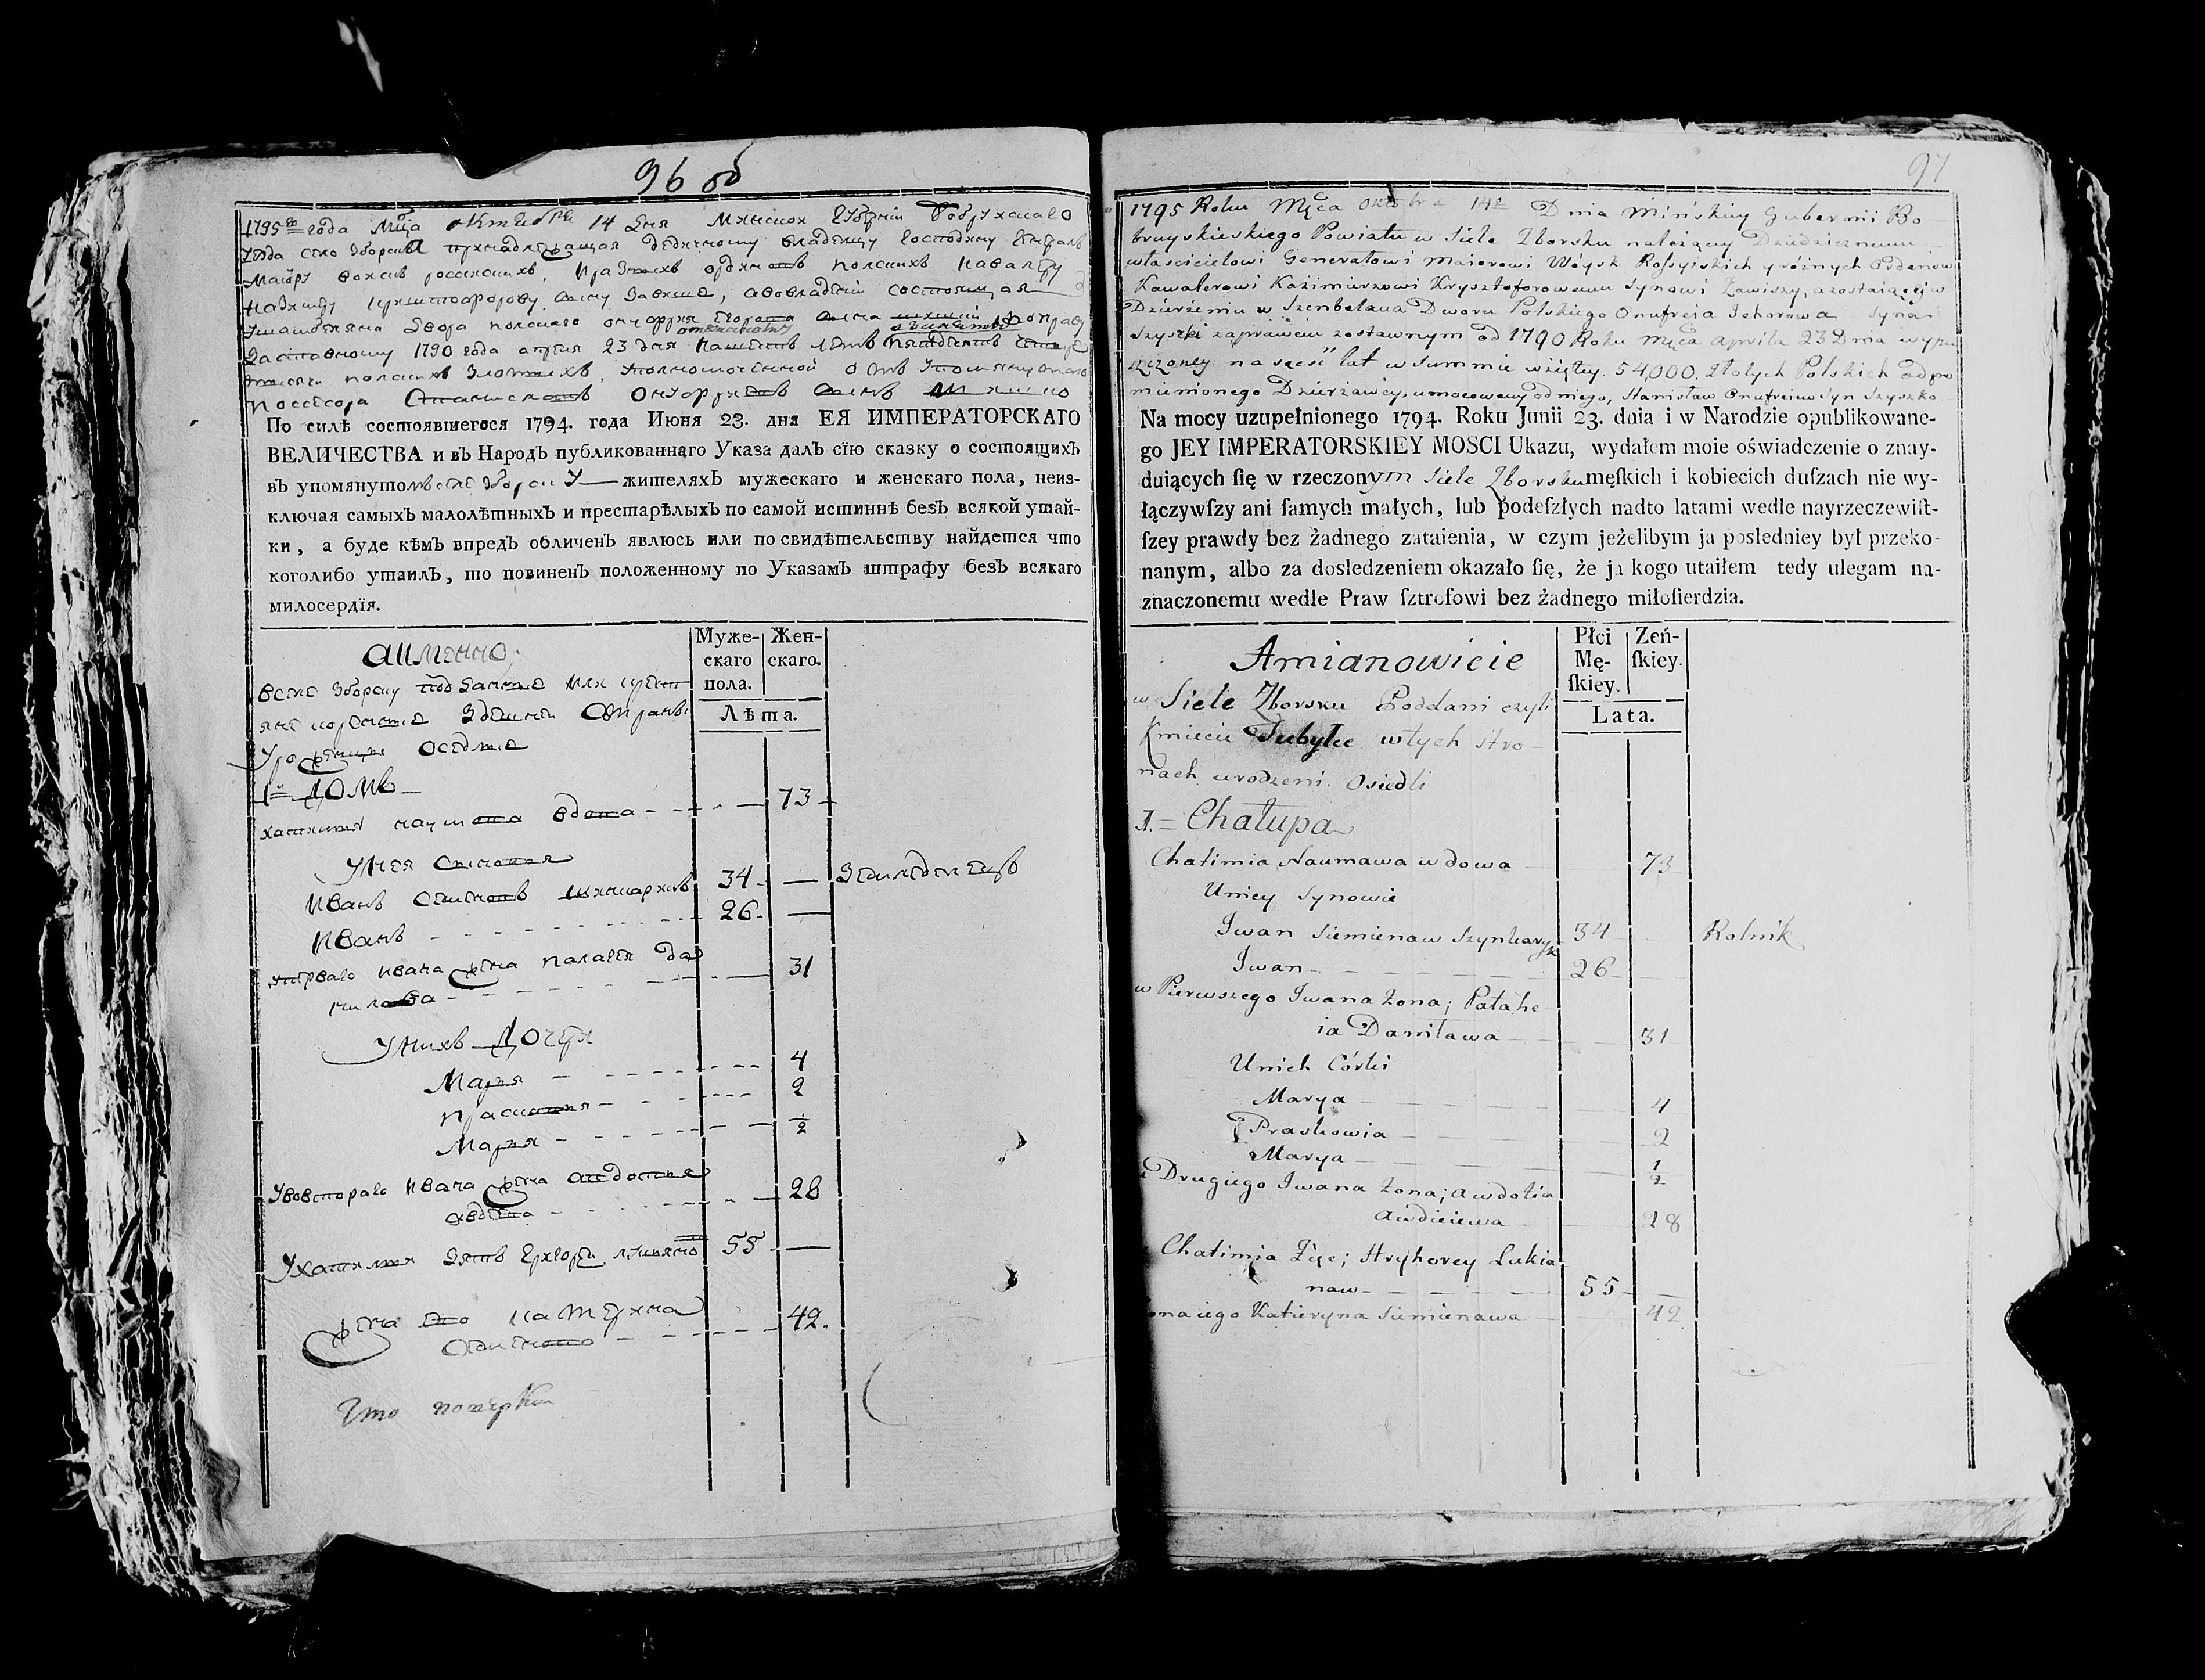 96 об
1795го года Мца октебря 14 дня Минской Губернии Бобруйскаго
уезда село Зборска принадлежащая дедичному владельцу Господину Генералъ
Маіору войскъ российскихъ, и разныхъ орденовъ польскихъ Кавалеру
Казимиру Криштофорову сыну Завише, а во владении состоящая
двора польскаго Онуфрия Егорова сына Шишки по праву
заставному 1790 года апреля 23 дня
тысячи польскихъ злотыхъ, уполномоченной отъ упомянутаго
поссесора Станиславъ Онуфриевъ сынъ Шишко
По силѣ состоявшегося 1794. года Июня 23. дня ЕЯ ИМПЕРАТОРСКАГО
ВЕЛИЧЕСТВА и въ Народъ публикованнаго Указа далъ сїю сказку о состоящихъ
въ упомянутомъ селе Зборску жителяхъ мужескаго и женскаго пола, неиз-
ключая самыхъ малолѣтныхъ и престарѣлыхъ по самой истиннѣ безъ всякой утай-
ки, а буде кѣмъ впредь обличенъ явлюсь или по свидѣтельству найдется что
коголибо утаилъ, то повиненъ положенному по Указамъ штрафу безъ всякаго
милосердїя.
а имянно.
Муже-
скаго
пола.
Жен-
скаго.
Лѣта.
в селе Зборску подданые или крестъ
яне коренные здешней стороны
уроженцы оседлые
1й Домъ
хатимия наумова вдова 73
у нея сыновья
Иванъ семеновъ шинкарживъ 34 земледелецъ
Иванъ 26
у перваго Ивана жена палагея да
нилова 31
у нихъ дочери
Мария 4
прасковия 2
Мария ½
У второго Ивана жена авдотия
авдеева 28
У хатимии зять Григорей лукьяновъ 55
жена его катерина
семенова 42.
97
1795 Roku Mca Oktobra 14e Dnia Mińskiey Gubernii Bo
bruyskieskiego Powiatu w Siele Zborsku należący Dziedzicznemu
właścicielowi Generałowi Maiorowi Wóysk Rossyiskich y różnych Orderów
Kawalerowi Kaźimierzowi Krysztoforowemu Synowi Zawiszy, a zostaiącey w
Dzierżeniu u Szenbelana Dworu Polskiego Onufreia Jehorowa Syna
Szyszki zaprawem zostawnym od 1790 Roku Męca Aprila 23 Dnia wypu
szczoney na sześć lat w Summie wziętey 54,000. Złotych Polskich od po
mienionego Dzierżawcy, umocowany od niego, Stanisław Onufreiew Syn Szyszko
Na mocy uzupełnionego 1794. Roku Junii 23. dnia i w Narodzie opublikowane-
go JEY IMPERATORSKIEY MOSCI Ukazu, wydałem moie oświadczenie o znay-
duiących ſię w rzeczonym Siele Zborsku męſkich i kobiecich duſzach nie wy-
łączywſzy ani ſamych małych, lub podeſzłych nadto latami wedle nayrzeczewiſt-
ſzey prawdy bez żadnego zataienia, w czym jeżelibym ja posledniey był przeko-
nanym, albo za dosledzeniem okazało ſię, że ja kogo utaiłem tedy ulegam na-
znaczonemu wedle Praw ſztrofowi bez żadnego miłoſierdzia.
Amianowicie
Płci
Mę-
ſkiey.
Żeń-
ſkiey.
Lata.
w Siele Zborsku Poddani czyli
Kmiecie Tubylce w tych stro
nach urodzeni. Osiedli
1. = Chałupa
Chatimia Naumawa wdowa 73
U niey Synowie
Iwan Siemienaw Szynkaryk 34 Rolnik
Iwan 26
u Pierwszego Iwana żona; Pałahe
ia Daniławа 31
U nich Córki
Marya 4
Praskowia 2
Marya ½
u Drugiego Iwana żona; Awdotia
Awdieiewa 28
Chatimia Zięć; Hryhorey Lukia
naw 55
ona iego Katieryna Siemienawa 42